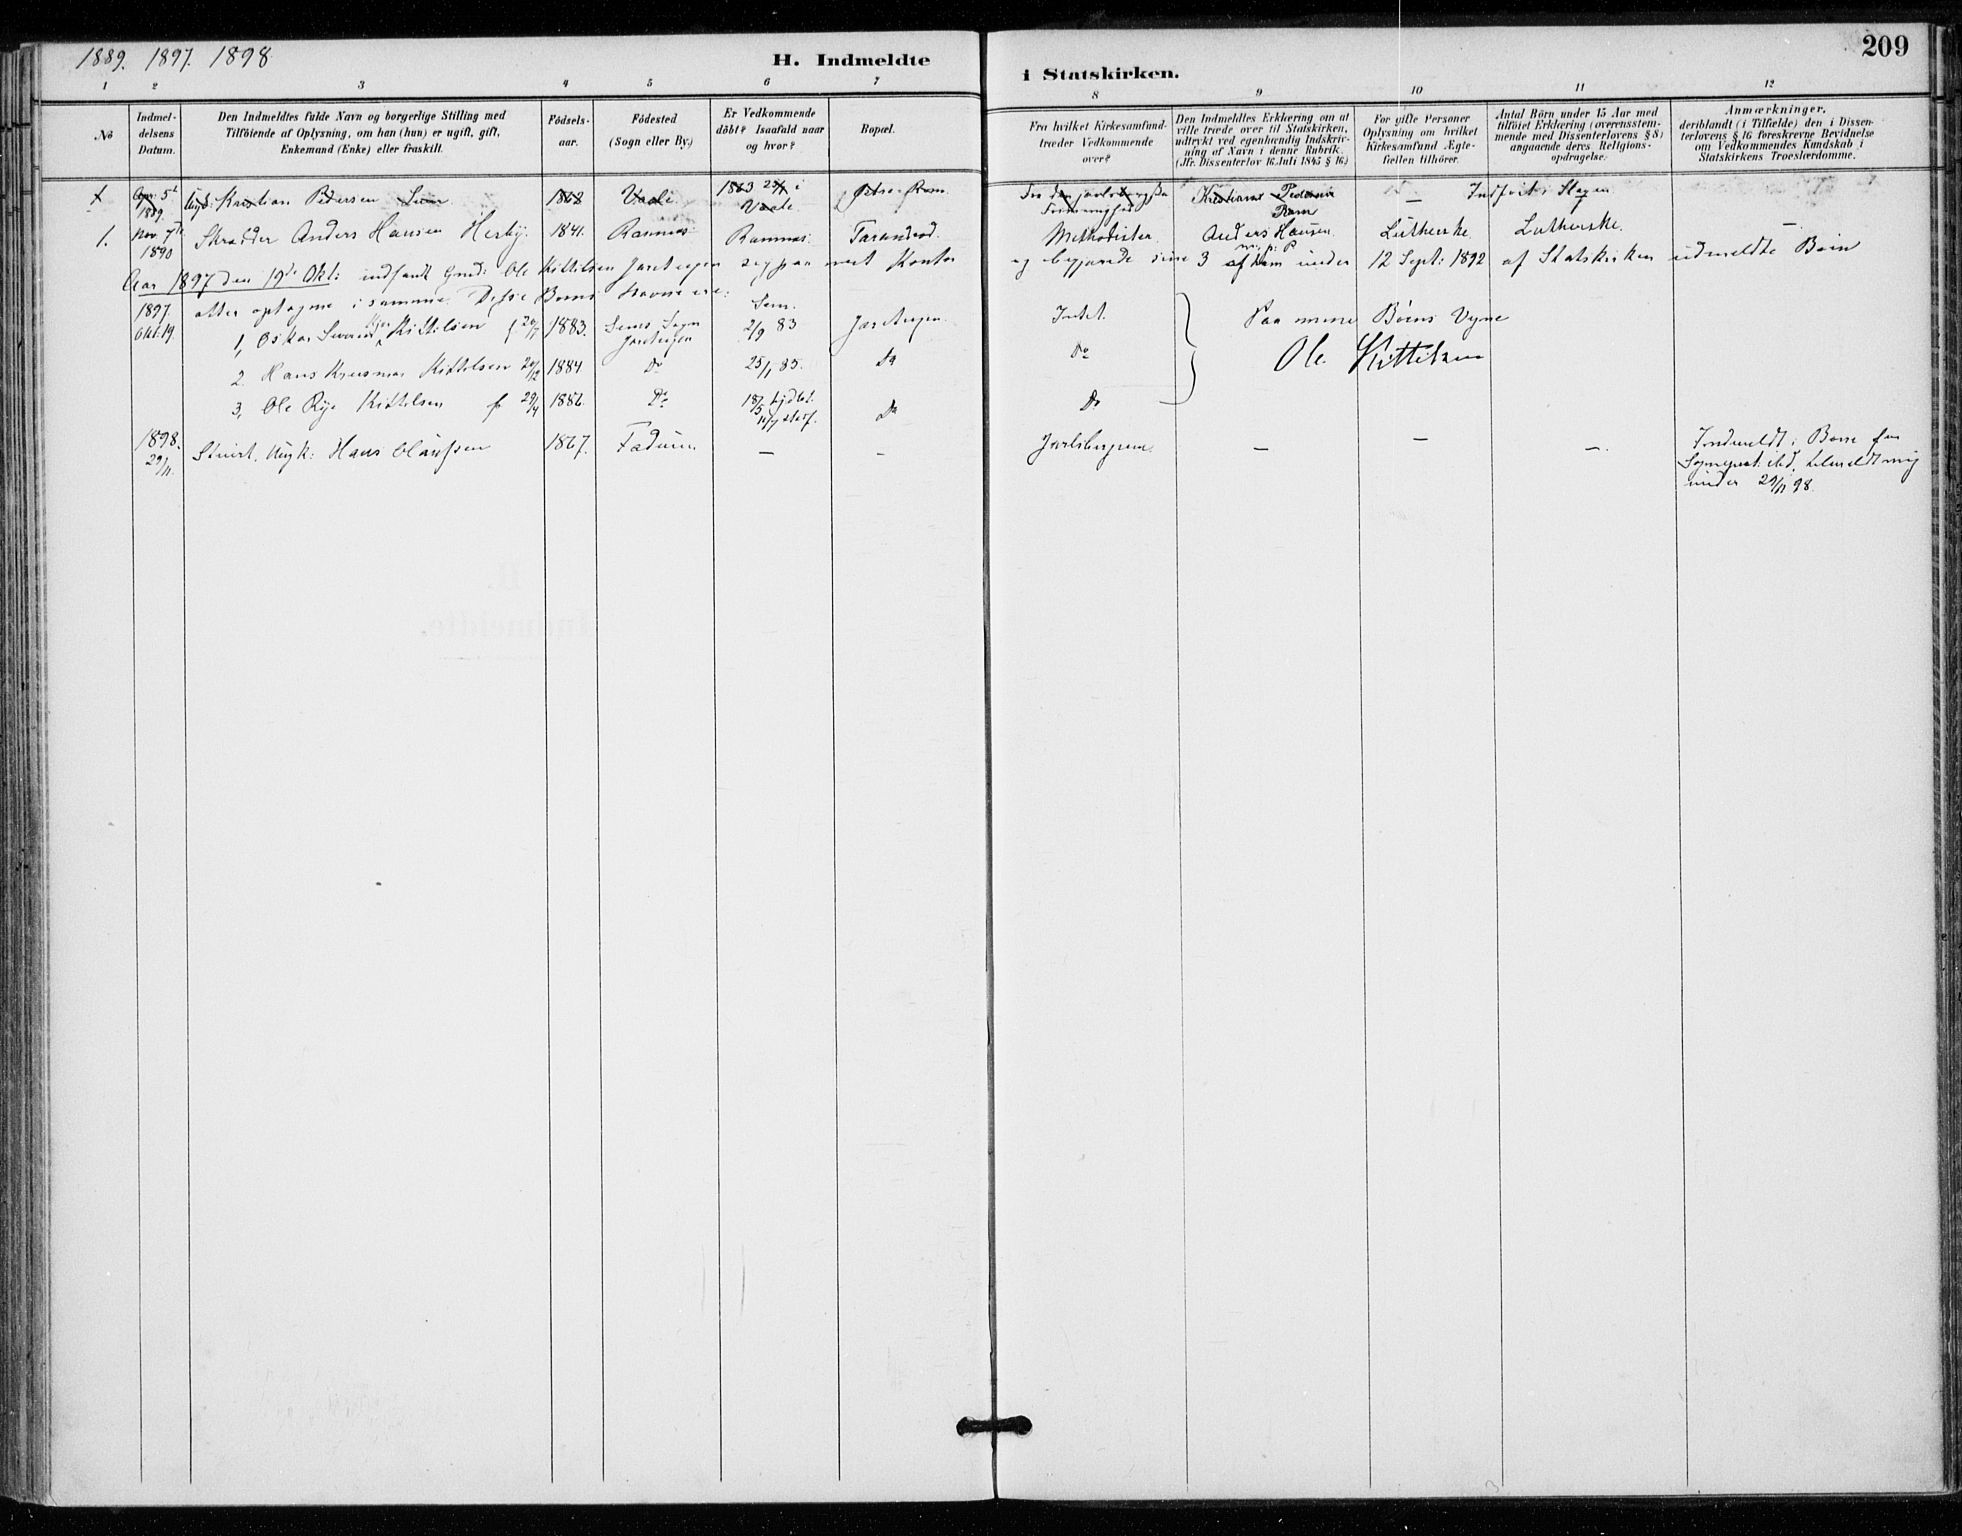 1889. 1897. 1898
H. Indmeldte
i Statskirken.
209
1 2 3 4 5 6 7 8 9 10 11 12
No
Indmel-
delsens
Datum.
Den Indmeldtes fulde Navn og borgerlige Stilling med
Tilföiende af Oplysning, om han (hun) er ugift, gift,
Enkemand (Enke) eller fraskilt.
Födsels-
aar.
Födested
(Sogn eller By.)
Er Vedkommende
döbt? Isaafald naar
og hvor?
Bopæl.
Fra hvilket Kirkesamfund
træder Vedkommende
over?
Den Indmeldtes Erklæring om at
ville træde over til Statskirken,
udtrykt ved egenhændig Indskriv-
ning af Navn i denne Rubrik.
(Jfr. Dissenterlov 16 Juli 1845 § 16.)
For gifte Personer
Oplysning om hvilket
Kirkesamfund Ægte-
fællen tilhörer.
Antal Börn under 15 Aar med
tilföiet Erklæring (overensstem-
mende med Dissenterlovens § 8)
angaaende deres Religions-
opdragelse.
Anmærkninger,
deriblandt (i Tilfælde) den i Dissen-
terlovens § 16 foreskrevne Bevidnelse
om Vedkommendes Kundskab i
Statskirkens Troeslærdomme.
5t 1889. Ungk. Kristian Pedersen 1862 Vaale 1863 i Vaale Ram Fra den jarlsbergske Frimenighed Kristian Pedersen Ram — Indført i Slagen
1. Nov. 7de 1890 Skrædder Anders Hansen Herby. 1841. Ramnæs Ramnæs. Methodister Anders Hansen m. p. P Lutherske Lutherske. —
Aar 1897 den 19de Okt: indfandt Gmd: Ole Kittilsen Jareteigen sig paa mit Kontor og begjærede sine 3 af ham under 12 Sept: 1892 af Statskirken udmeldte Børn
atter optagne i samme. Disse Børns Navne ere:
1897. Okt. 19. 1, Oskar Severin Kittilsen f 1883. Sems Sogn Jareteigen Sem. 2/9 83 Jareteigen. Intet. Paa mine Børns Vegne
2. Hans Kittilsen 20/12 1884 Do 25/1 85. Do Do Ole Kittilsen
3, Ole Rye Kittilsen f 29/4 1886. Do 18/5 hjdbt. Do Do
1898. 29/11. Ungk: Hans Olaussen 1867. Fadum — — Jarlsbergerne. — — —. Indmeldt i Borre for
Sognepræst. ibid, tilmeldt mig
under 29/11 98.